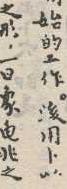 始的工作。後用卜以
之形，一曰象曲兆之